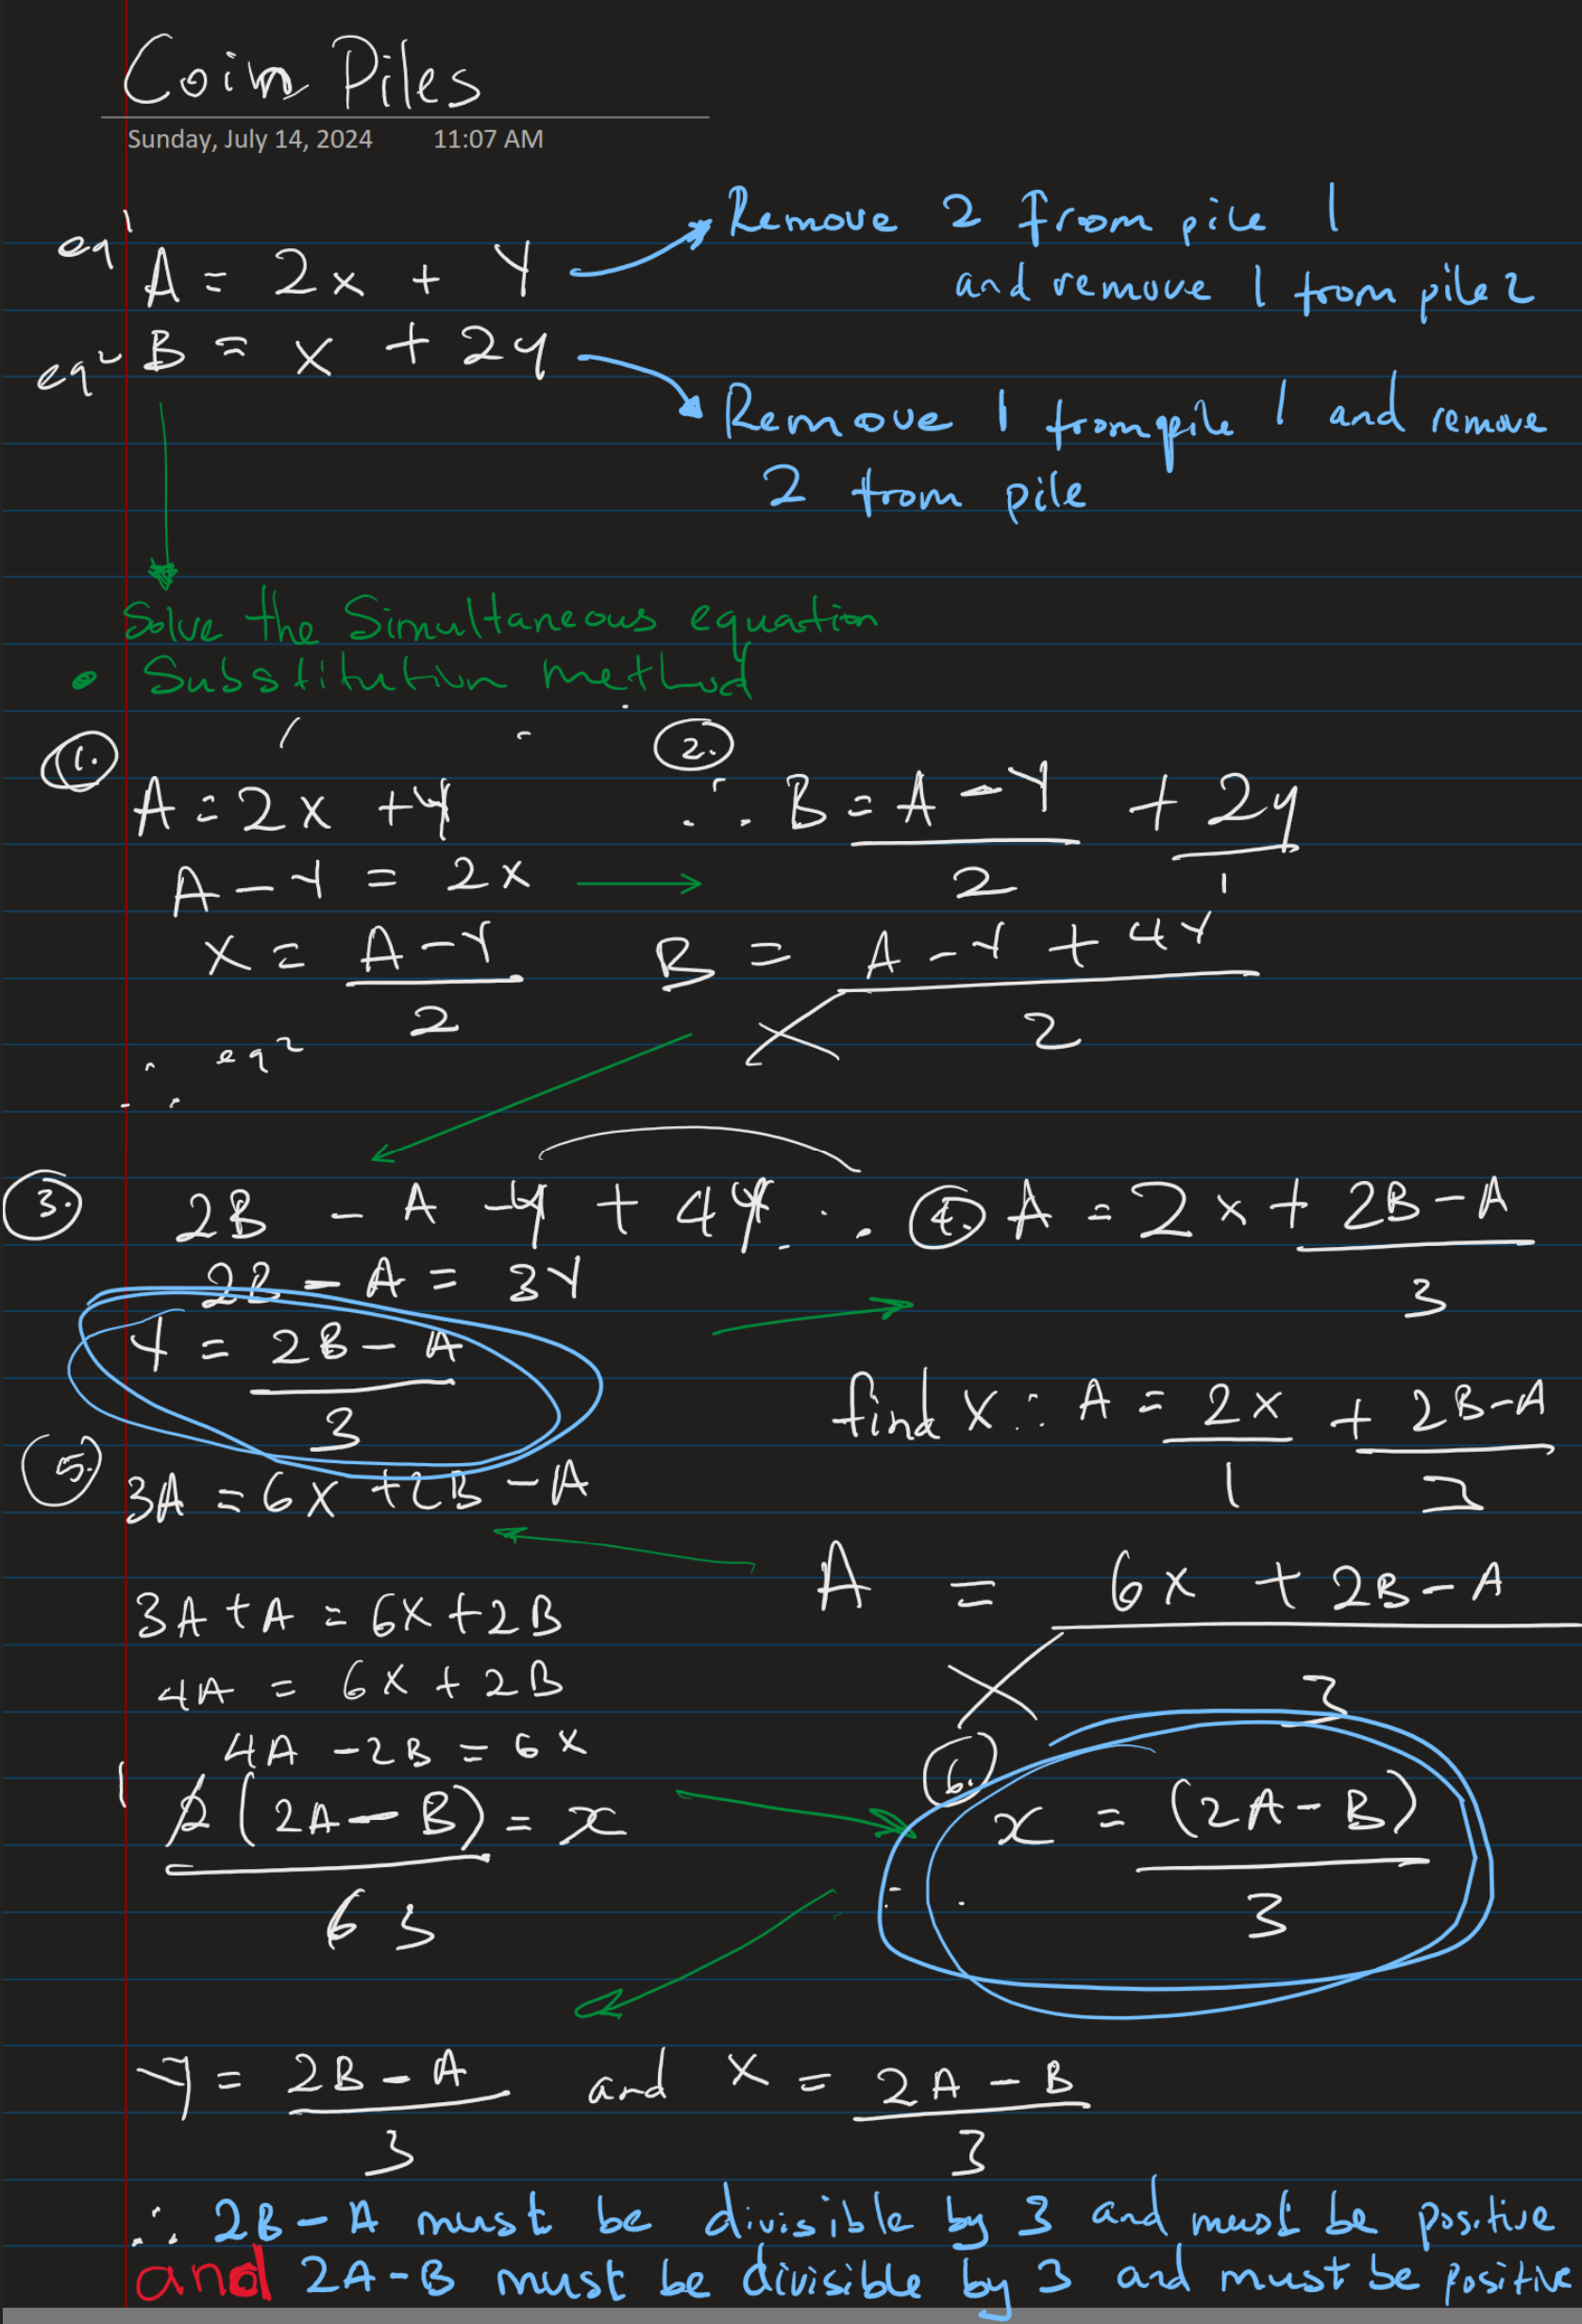 Coin Piles
Sunday, July 14, 2024 11:07 AM
eq1 A = 2x + Y
Remove 2 from pile 1
and remove 1 from pile 2
eq2 B = x + 2y
Remove 1 from pile 1 and remove
2 from pile
Solve the Simultaneous equation
• Substitution method
1.
A = 2x + y
A - Y = 2x
x = A - Y / 2
∴ eq2
2.
∴ B = A - Y / 2 + 2y / 1
B = A - Y + 4Y / 2
3. 2B - A - y + 4y
2B - A = 3Y
Y = 2B - A / 3
∴ 4. A = 2x + 2B - A / 3
find x ∴ A = 2x / 1 + 2B - A / 3
A = 6x + 2B - A / 3
5. 3A = 6x + 2B - A
3A + A = 6x + 2B
4A = 6x + 2B
4A - 2B = 6x
1
2 (2A - B) / 6 3 = x
6.
∴ x = (2A - B) / 3
Y = 2B - A / 3 and x = 2A - B / 3
∴ 2B - A must be divisible by 3 and must be positive
and 2A - B must be divisible by 3 and must be positive